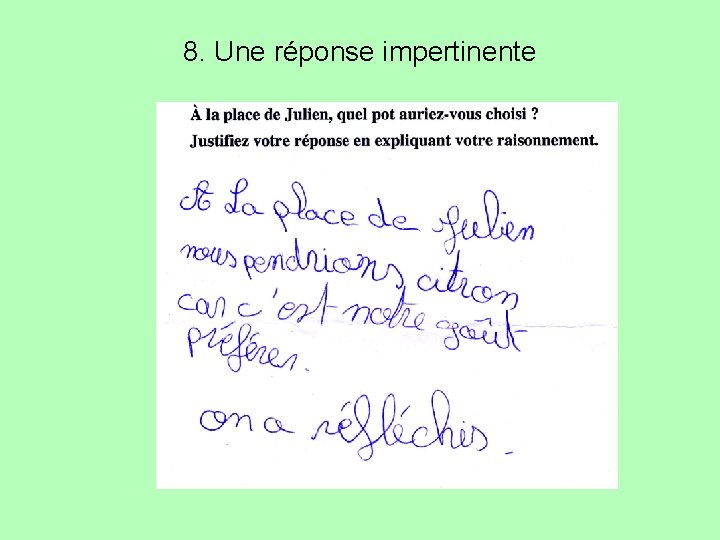 8. Une réponse impertinente
À la place de Julien, quel pot auriez-vous choisi ?
Justifiez votre réponse en expliquant votre raisonnement.
A La place de Julien
nous pendrions citron
car c'est notre goût
préférer.
on a réfléchis.